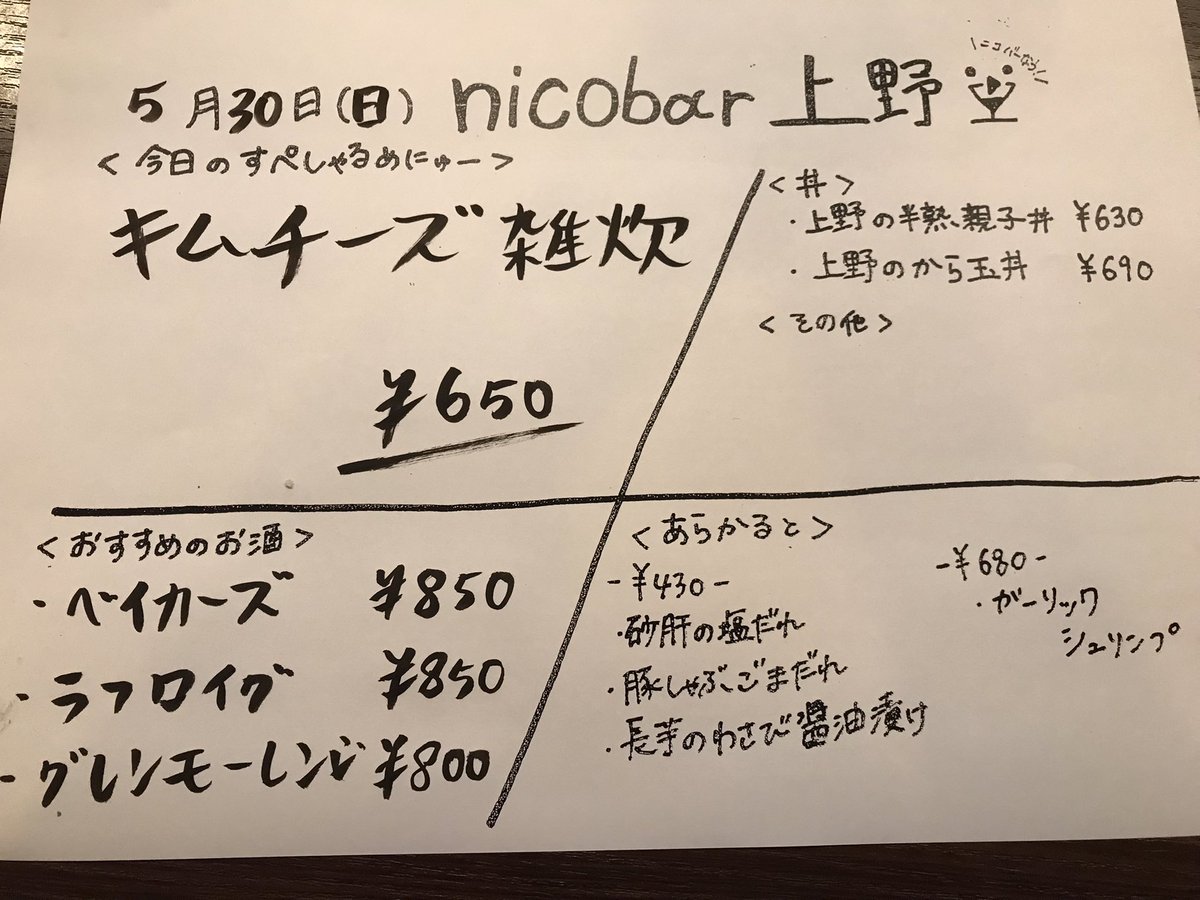 5月30日(日) nicobar 上野
\ニコバーなう!/
<今日のすぺしゃるめにゅー>
キムチーズ雑炊
¥650
<丼>
・上野の半熟親子丼 ¥630
・上野のから玉丼 ¥690
<その他>
<おすすめのお酒>
・ベイカーズ ¥850
・ラフロイグ ¥850
・グレンモーレンジ ¥800
<あらかると>
-¥430-
・砂肝の塩だれ
・豚しゃぶごまだれ
・長芋のわさび醤油漬け
-¥680-
・ガーリック
シュリンプ